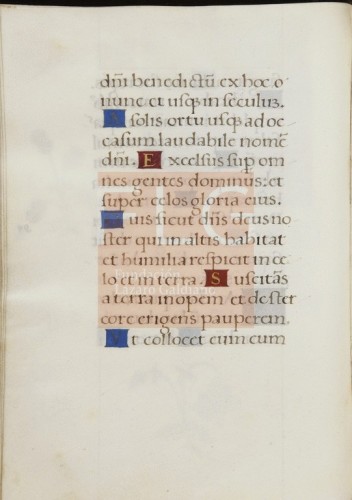 dñi benedictũ ex hoc o
nunc et usq; in seculuz.
A solis ortu usq; ad oc
casum laudabile nomẽ
dñi. Excelsus sup om
nes gentes dominus: et
super celos gloria eius.
Quis sicut dñs deus no
ster qui in altis habitat
et humilia respicit in ce
lo et in terra. Suscitãs
a terra inopem et de ster
core erigens pauperem.
Ut collocet eum cum
FLG
Fundación
Lázaro Galdiano